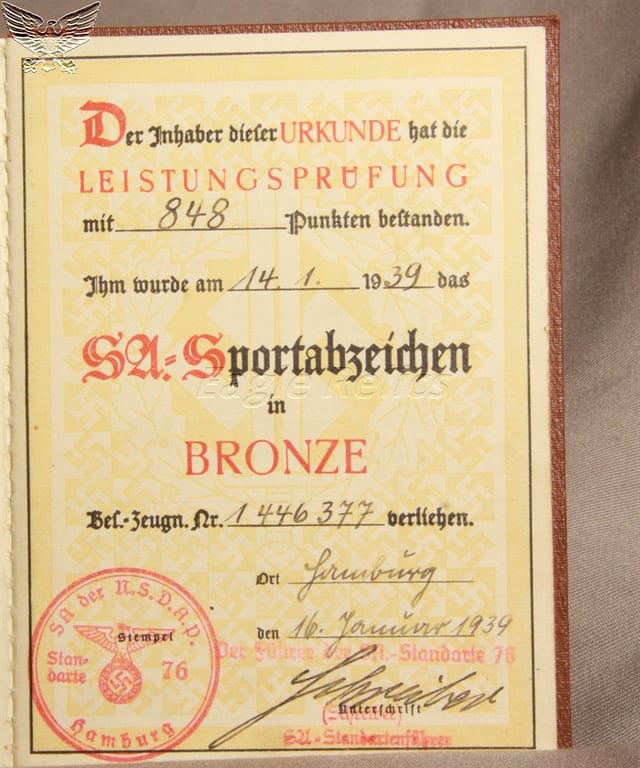 Der Inhaber dieser URKUNDE hat die
LEISTUNGSPRÜFUNG
mit 848 Punkten bestanden.
Ihm wurde am 14. 1. 1939 das
SA.-Sportabzeichen
Eagle Relics
in
BRONZE
Bes.-Zeugn. Nr. 1446377 verliehen.
Ort Hamburg
den 16. Januar 1939
SA der N.S.D.A.P.
Stempel
Standarte 76
Hamburg
Der Führer der SA.-Standarte 76
Schreiber
Unterschrift
(Schreiber)
SA-Standartenführer